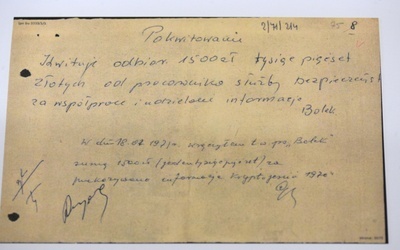 2/71/214 85 8
Pokwitowanie
Kwituję odbiór 1500 zł tysiąc pięćset
złotych od pracownika służby bezpieczeńst
za współpracę i udzielone informacje
Bolek
W dn. 18.01.1971r. wręczyłem t.w. ps. "Bolek"
sumę 1500 zł (jeden tysiąc pięćset) za
przekazywane informacje 1970